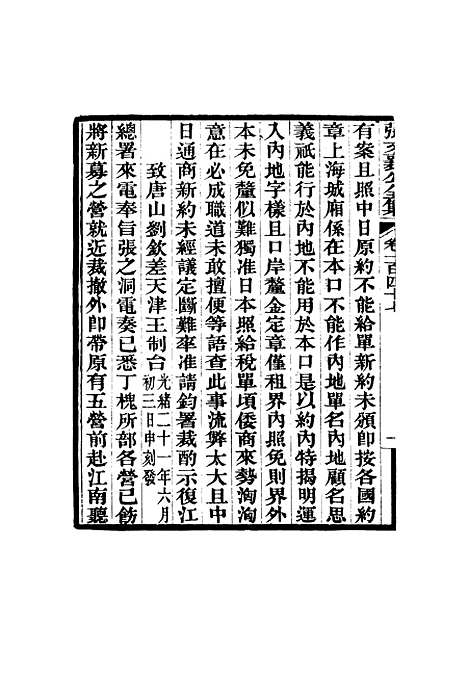 張文襄公全集 卷一百四十七 一
有案且照中日原約不能給單新約未頒卽按各國約
章上海城廂係在本口不能作內地單名內地顧名思
義祇能行於內地不能用於本口是以約內特揭明運
入內地字樣且口岸釐金定章僅租界內照免則界外
本未免釐似難獨准日本照給稅單頃倭商來勢洶洶
意在必成職道未敢擅便等語查此事流弊太大且中
日通商新約未經議定斷難率准請鈞署裁酌示復江
致唐山劉欽差天津王制台 光緒二十一年六月初三日申刻發
總署來電奉旨張之洞電奏已悉丁槐所部各營已飭
將新募之營就近裁撤外卽帶原有五營前赴江南聽